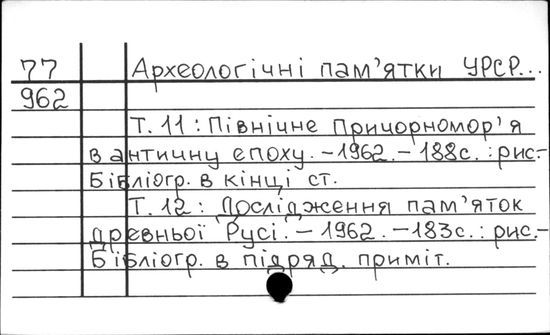 77 Археологічні пам'ятки УРСР...
962
Т. 11 : Північне Причорномор'я
в античну епоху. - 1962. - 188с. : рис.-
Бібліогр. в кінці ст.
Т. 12 : Дослідження пам'яток
древньої Русі. - 1962. - 183с. : рис.-
Бібліогр. в підряд. приміт.